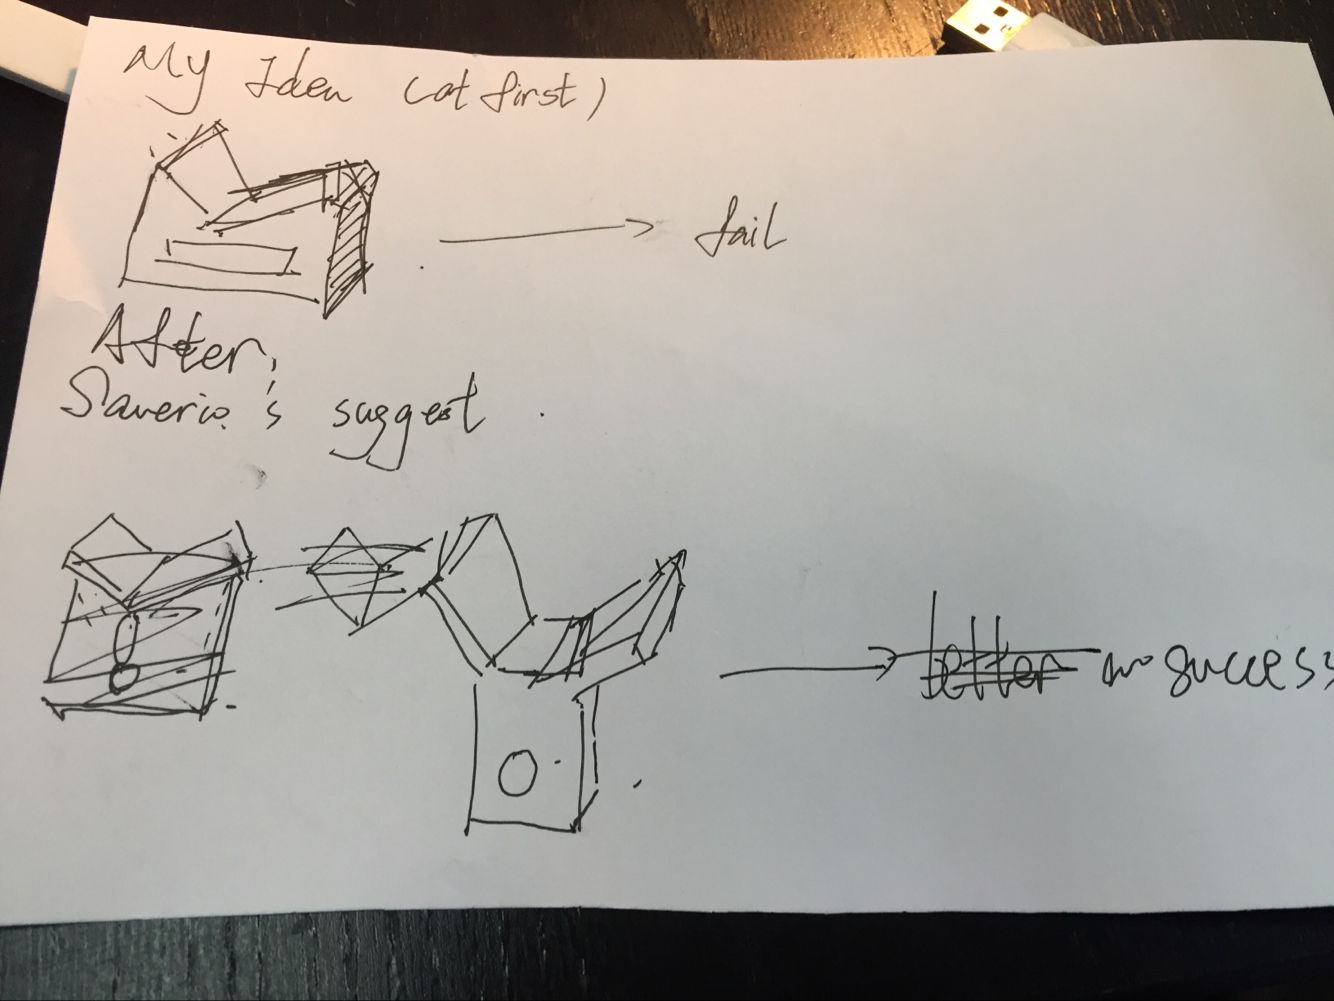 My Idea (at first)
fail
After,
Saverio's suggest
better success